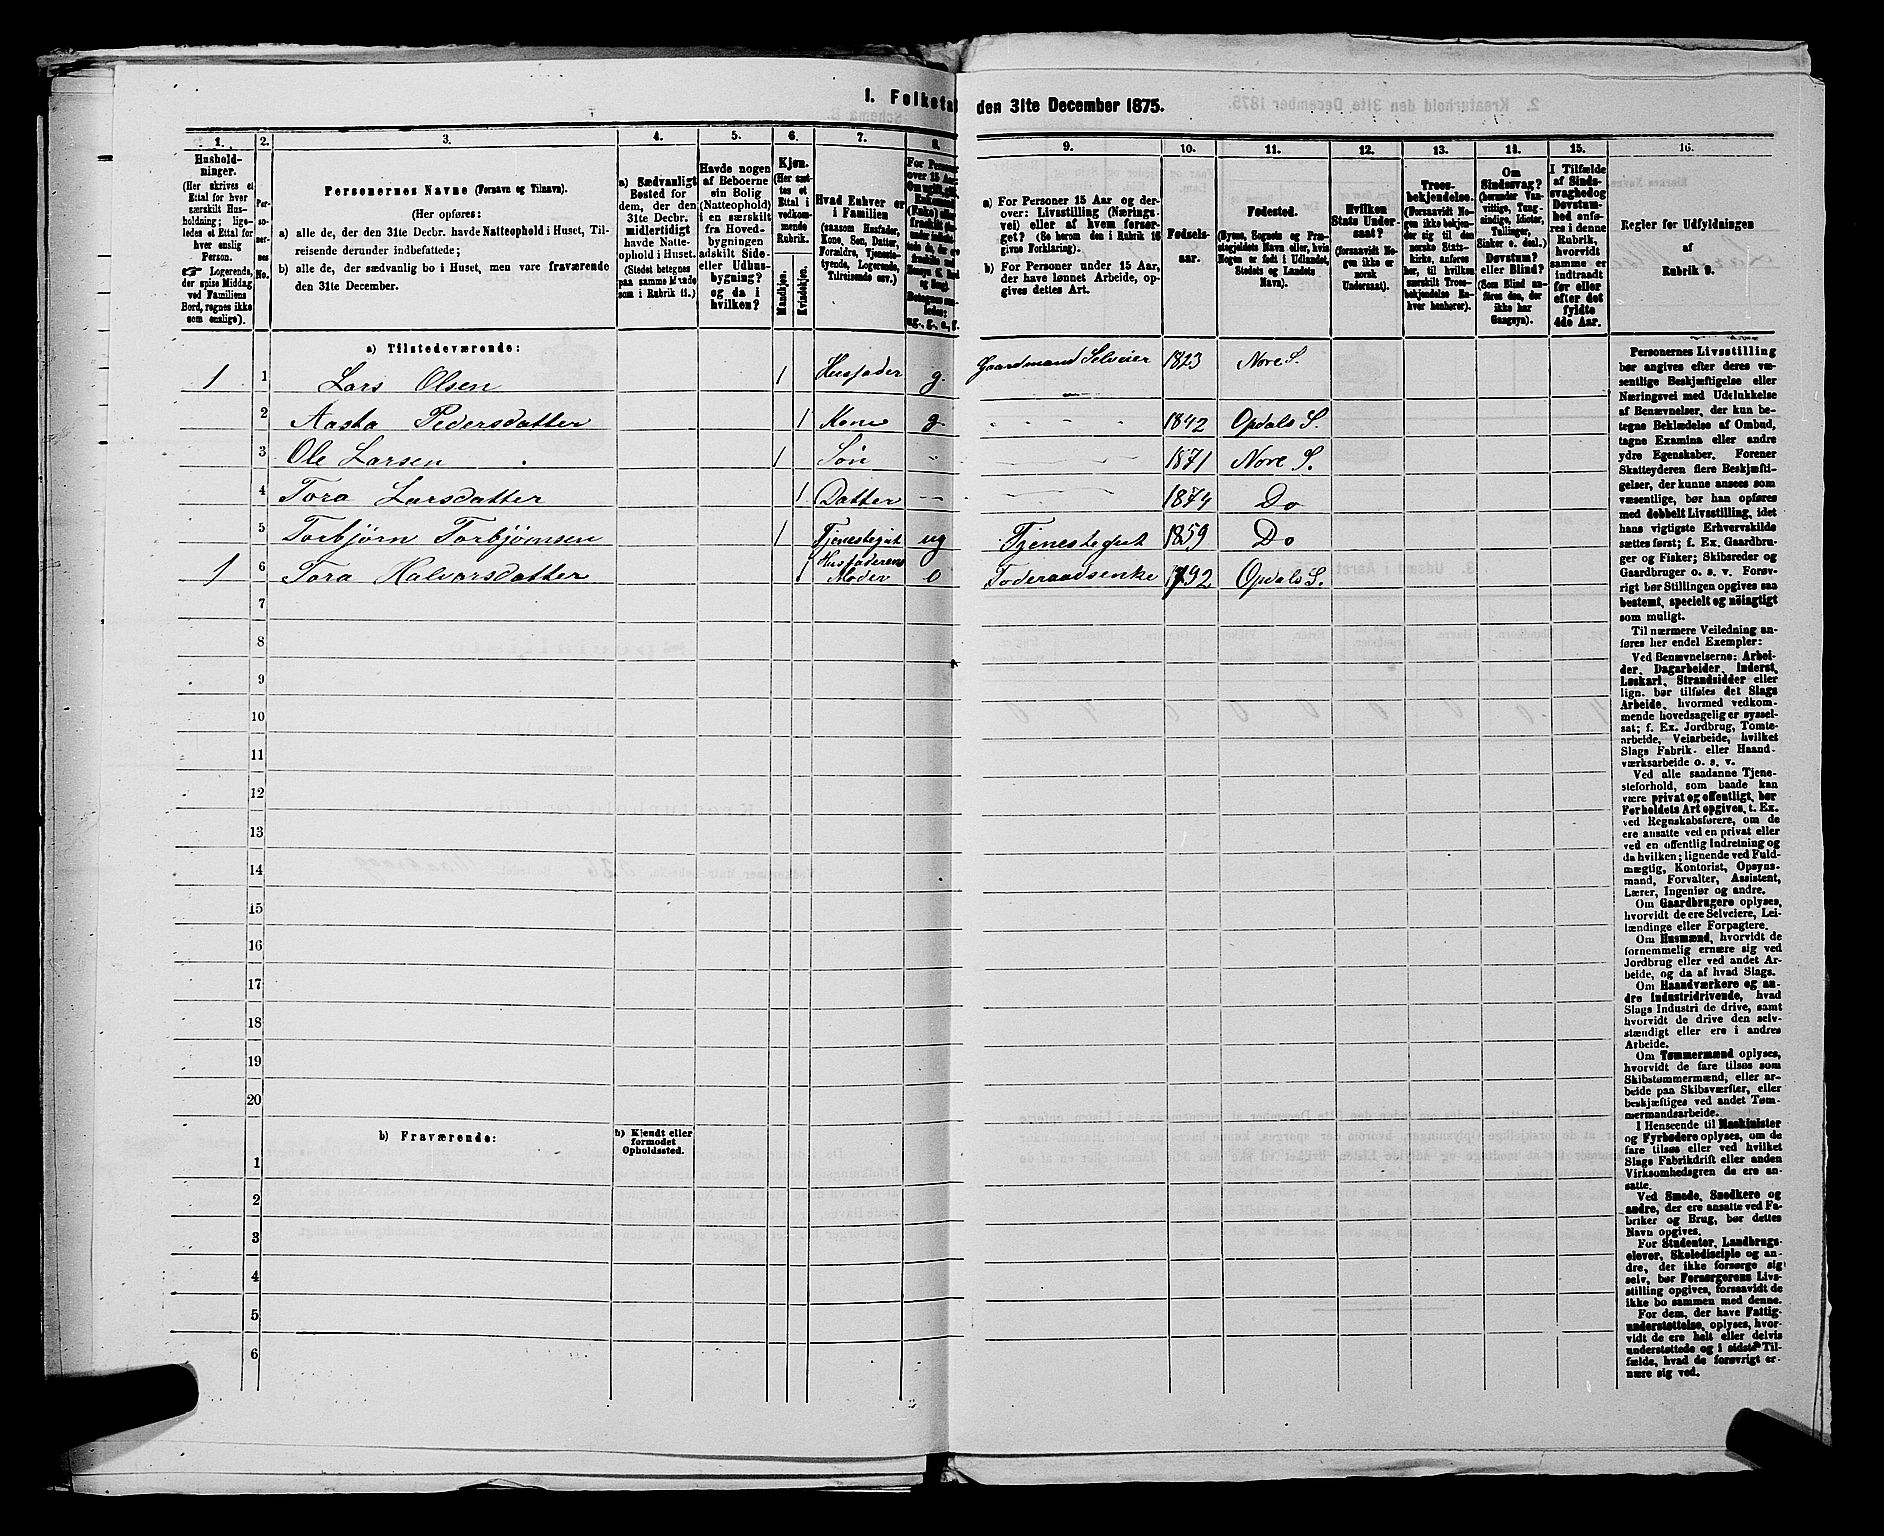 I. Folketæl
den 31te December 1875.
1. 2. 3. 4. 5. 6. 7. 8.
Hushold-
ninger.
(Her skrives et
Ettal for hver
særskilt Hus-
holdning; lige-
ledes et Ettal for
hver enslig
Person.
☞ Logerende,
der spise Middag
ved Familiens
Bord, regnes ikke
som enslige).
Per-
so-
ner-
nes
No.
Personernes Navne (Fornavn og Tilnavn).
(Her opføres:
a) alle de, der den 31te Decbr. havde Natteophold i Huset, Til-
reisende derunder indbefattede;
b) alle de, der sædvanlig bo i Huset, men vare fraværende
den 31te December.
a) Sædvanligt
Bosted for
dem, der den
31te Decbr.
midlertidigt
havde Natte-
ophold i Huset.
(Stedet betegnes
paa samme Maade
som i Rubrik 11.)
Havde nogen
af Beboerne
sin Bolig
(Natteophold)
i en særskilt
fra Hoved-
bygningen
adskilt Side-
eller Udhus-
bygning?
og da i
hvilken?
Kjøn.
(Her sæt-
tes et
Ettal i
vedkom-
mende
Rubrik.
Mandkjøn.
Kvindekjøn.
Hvad Enhver er
i Familien
(saasom Husfader,
Kone, Søn, Datter,
Forældre, Tjeneste-
tyende, Logerende,
Tilreisende osv.)
9. 10. 11. 12. 13. 14. 15. 16.
a) For Personer 15 Aar og der-
over: Livsstilling (Nærings-
vei) eller af hvem forsør-
get? (Se herom den i Rubrik 16
givne Forklaring).
b) For Personer under 15 Aar,
der have lønnet Arbeide, op-
gives dettes Art.
Fødsels-
aar.
Fødested.
(Byens, Sognets og Præ-
stegjeldets Navn eller, hvis
Nogen er født i Udlandet,
Stedets og Landets
Navn).
Hvilken
Stats Under-
saat?
(forsaavidt No-
gen ikke er
norsk
Undersaat).
Troes-
bekjendelse.
(Forsaavidt No-
gen ikke bekjen-
der sig til den
norske Stats-
kirke, anføres
her, til hvilken
særskilt Troes-
bekjendelse En-
hver henhører).
Om
Sindssvag?
(herunder Van-
vittige, Tung-
sindige, Idioter,
Tullinger,
Sinker o. desl.)
Døvstum?
eller Blind?
(Som Blind an-
føres den, der
ikke har
Gangsyn).
I Tilfælde
af Sinds-
svaghed og
Døvstum-
hed anfø-
res i denne
Rubrik,
hvorvidt
samme er
indtraadt
før eller
efter det
fyldte
4de Aar.
Regler for Udfyldningen
af
Rubrik 9.
a) Tilstedeværende:
1 1 Lars Olsen 1 Husfader g. Gaardmand Selveier 1823 Nore S.
2 Aasta Pedersdatter 1 Kone g. 1842 Opdals S.
3 Ole Larsen 1 Søn 1871 Nore S.
4 Tora Larsdatter 1 Datter 1874 Do
5 Torbjørn Torbjørnsen 1 Tjenestegut ug Tjenestegut 1859 Do
1 6 Tora Halvorsdatter 1 Husfaderens Moder e Foderaadsenke 1792 Opdals S.
7
8
9
10
11
12
13
14
15
16
17
18
19
20
b) Fraværende:
b) Kjendt eller
formodet
Opholdssted.
1
2
3
4
5
6
Personernes Livsstilling
bør angives efter deres væ-
sentlige Beskjæftigelse eller
Næringsvei med Udelukkelse
af Benævnelser, der kun be-
tegne Beklædelse af Ombud,
tagne Examina eller andre
ydre Egenskaber. Forener
Skatteyderen flere Beskjæfti-
gelser, der kunne ansees som
væsentlige, bør han opføres
med dobbelt Livsstilling, idet
hans vigtigste Erhvervskilde
sættes først; f. Ex. Gaardbru-
ger og Fisker; Skibsreder og
Gaardbruger o. s. v. Forøv-
rigt bør Stillingen opgives saa
bestemt, specielt og nøiagtigt
som muligt.
Til nærmere Veiledning an-
føres her endel Exempler:
Ved Benævnelserne: Arbei-
der, Dagarbeider, Inderst,
Løskarl, Strandsidder eller
lign. bør tilføies det Slags
Arbeide, hvormed vedkom-
mende hovedsagelig er syssel-
sat; f. Ex. Jordbrug, Tomte-
arbeide, Veiarbeide, hvilket
Slags Fabrik- eller Haand-
værksarbeide o. s. v.
Ved alle saadanne Tjene-
steforhold, som baade kan
være privat og offentligt, bør
Forholdets Art opgives, t. Ex.
ved Regnskabsførere, om de
ere ansatte ved en privat eller
ved en offentlig Indretning og
da hvilken; lignende ved Fuld-
mægtig, Kontorist, Opsyns-
mand, Forvalter, Assistent,
Lærer, Ingeniør og andre.
Om Gaardbrugere oplyses,
hvorvidt de ere Selveiere, Lei-
lændinge eller Forpagtere.
Om Husmænd, hvorvidt de
fornemmelig ernære sig ved
Jordbrug eller ved andet Ar-
beide, og da af hvad Slags.
Om Haandværkere og an-
dre Industridrivende, hvad
Slags Industri de drive, samt
hvorvidt de drive den selv-
stændigt eller ere i andres
Arbeide.
Om Tømmermænd oplyses,
hvorvidt de fare tilsøs som
Skibstømmermænd, eller ar-
beide paa Skibsværfter, eller
beskjæftiges ved andet Tøm-
mermandsarbeide.
I Henseende til Maskinister
og Fyrbødere oplyses, om de
fare tilsøs eller ved hvilket
Slags Fabrikdrift eller anden
Virksomhedsgren de ere an-
satte.
Ved Smede, Snedkere og
andre, der ere ansatte ved Fa-
briker og Brug, bør dettes
Navn opgives.
For Studenter, Landbrugs-
elever, Skoledisciple og an-
dre, der ikke forsørge sig
selv, bør Forsørgerens Livs-
stilling opgives, forsaavidt de
ikke bo sammen med denne.
For dem, der have Fattig-
understøttelse, oplyses, hvor-
vidt de ere helt eller delvis
understøttede og i sidste Til-
fælde, hvad de forøvrigt er-
nære sig ved.